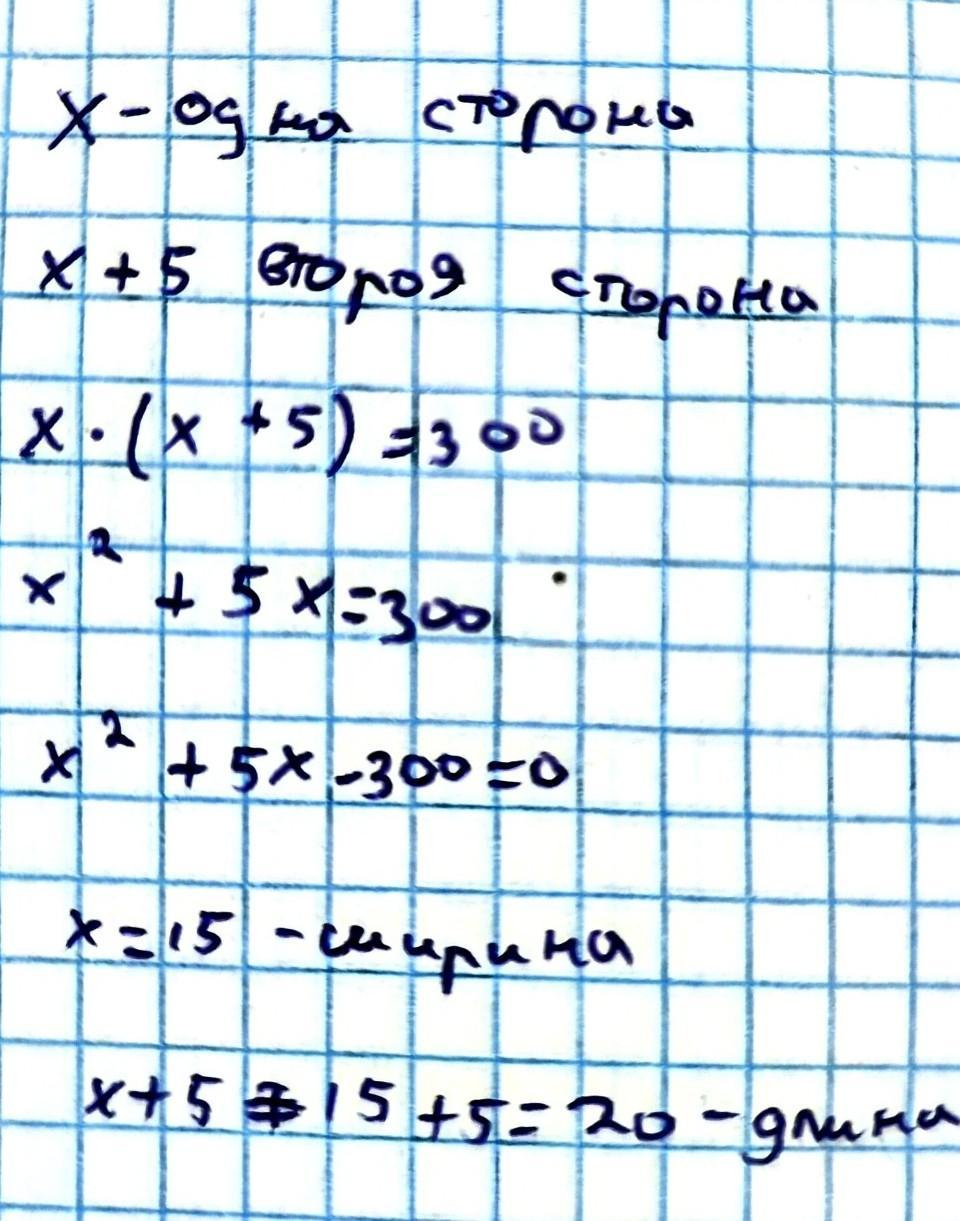 x - одна сторона
x + 5 вторая сторона
x · (x + 5) = 300
x² + 5x = 300
x² + 5x - 300 = 0
x = 15 - ширина
x + 5 = 15 + 5 = 20 - длина